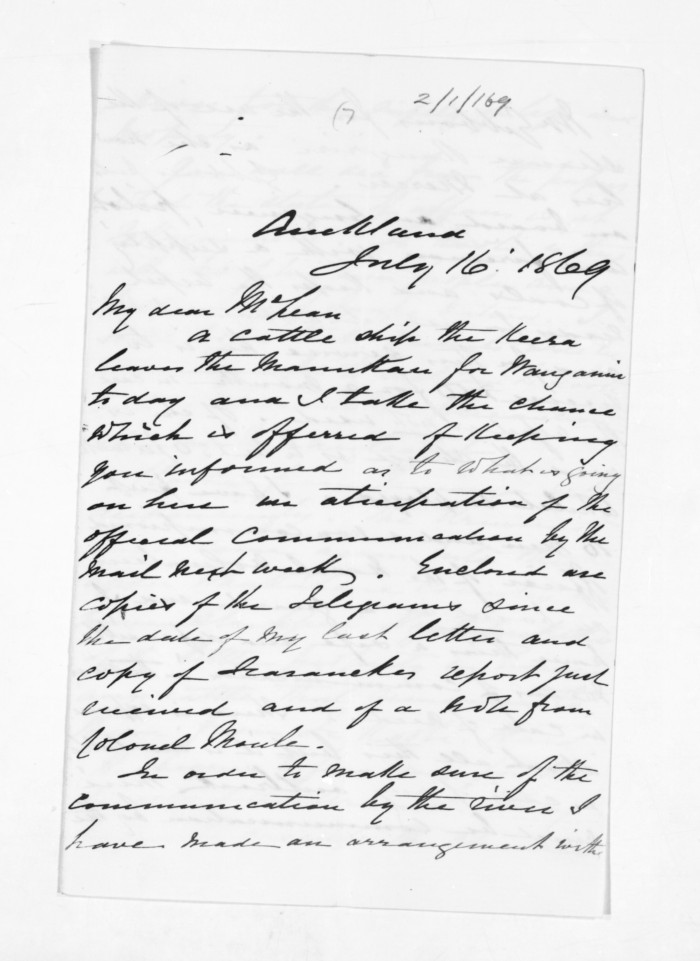 2/1/169
Auckland
July 16. 1869
My dear McLean
A cattle ship the Keera
leaves the Manukau for Wanganui
to day and I take the chance
which is offerred of keeping
you informed as to what is going
on here in aticipation of the
official communication by the
mail next week. Enclosed are
copies of the Telegrams since
the date of my last letter and
copy of report just
received and of a note from
Colonel Moule.
In order to make sure of the
communication by the river I
have made an arrangement with